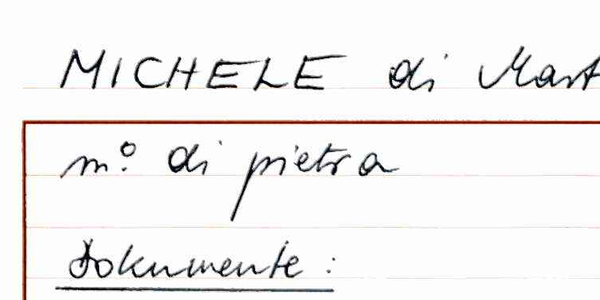 MICHELE di Mart
m° di pietra
Dokumente: